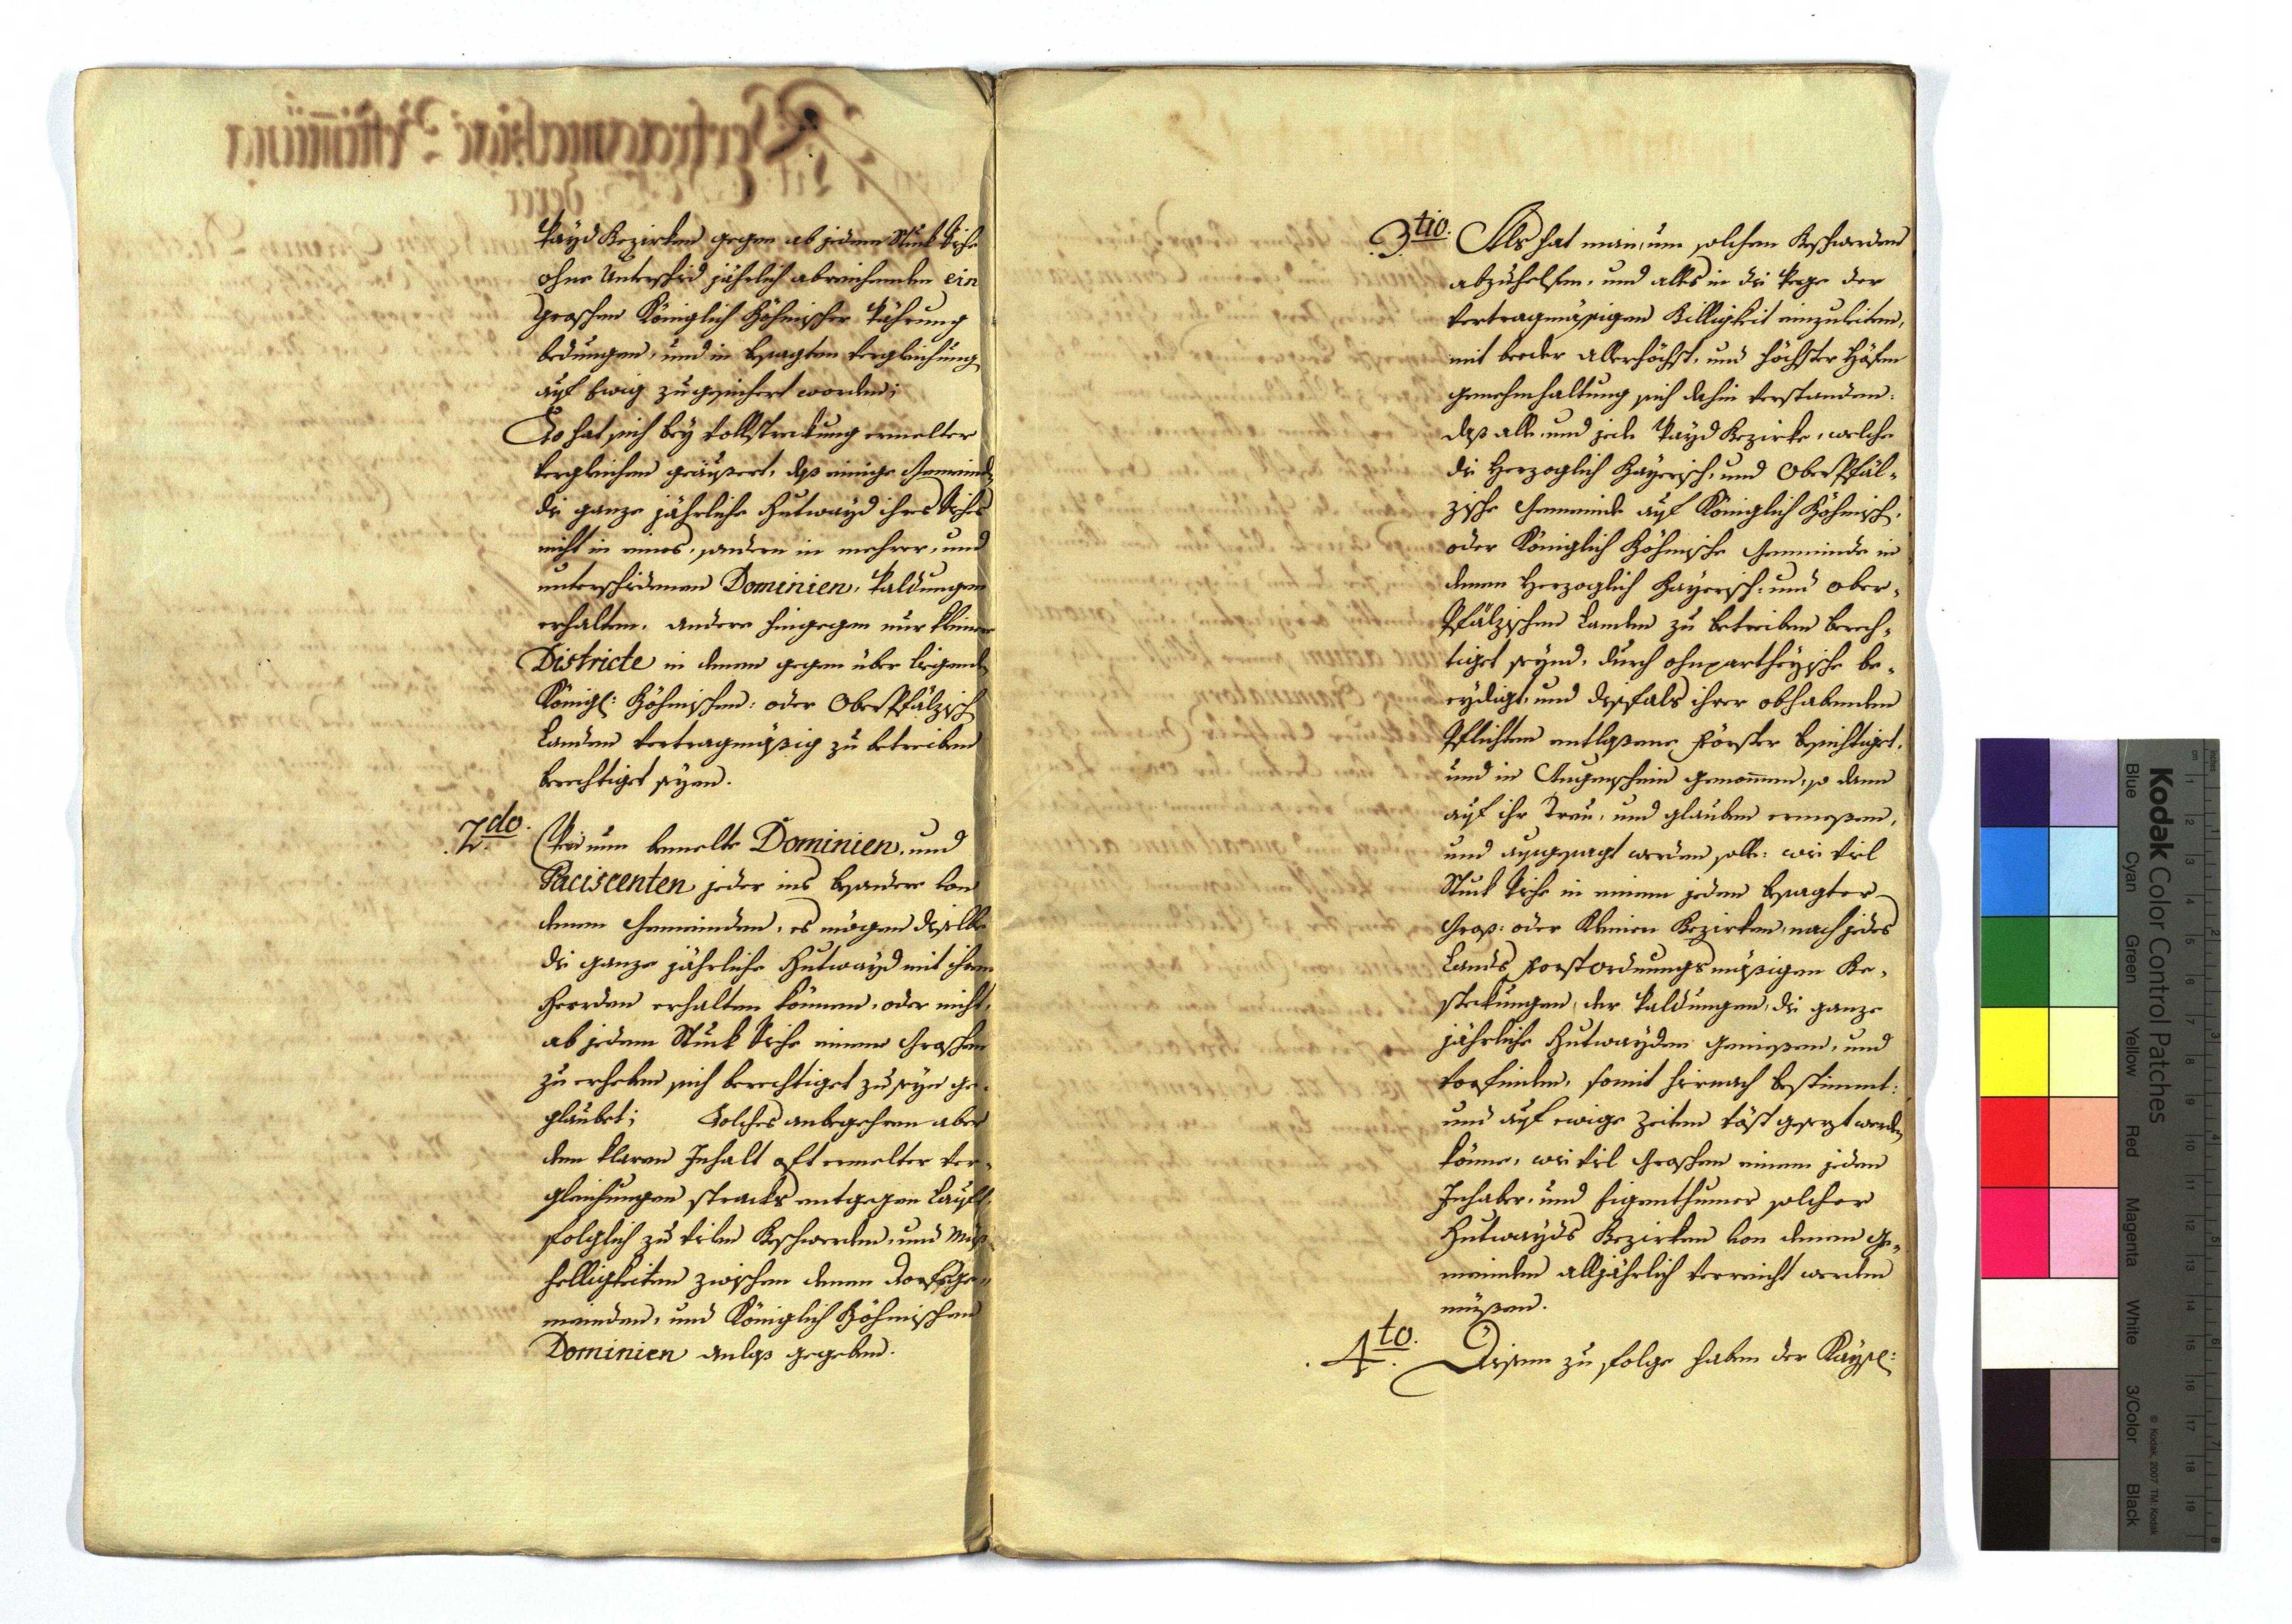 Wayd Bezirken gegen ab jedem Stuck Viehe
ohne Unterschid jährlich abreichenden ein
Groschen Königlich Böhmischer Währung
bedungen, und in besagten Vergleichung
auf Ewig zugesichert worden;
So hat sich bey Vollstreckung ermelter
Vergleichen geäußert, daß einige Gemeind
die ganze jährliche Hutwayd ihres Viehes
nicht in eines, sondern in mehrer, und
unterschidenen Dominien, Waldungen
erhalten, andere hingegen nur kleinere
Districte in denen gegen über ligende
Königl: Böhmischen: oder OberPfälzisch
Landen Vertragmäßig zu betreiben
berechtiget seyen.
2.do. Wie nun bemelte Dominien, und
Paciscenten jeder ins besondere von
denen Gemeinden, es mögen dieselbe
die ganze jährliche Hutwayd mit ihren
Heerden erhalten können, oder nicht,
ab jedem Stuck Viehe einen Groschen
zu erheben sich berechtiget zu seyn ge-
glaubet; Solches anbegehren aber
dem klaren Inhalt oft ermelter Ver-
gleichungen stracks entgegen Lauft,
folglich zu vilen Beschwerden, und Miß
helligkeiten zwischen denen Dorfsge-
meinden, und Königlich Böhmischen
Dominien anlaß gegeben.
3.tio. Als hat man, um solchen Beschwerden
abzuhelfen, und alles in die Wege der
Vertragmäsigen Billigkeit einzuleiten,
mit beeder Allerhöchst, und Höchster Höfen
Genehmhaltung sich dahin verstanden:
daß alle, und jede Wayd Bezirke, welche
die Herzoglich Bayerisch, und OberPfäl-
zische Gemeinde auf Königlich Böhmisch,
oder Königlich Böhmische Gemeinde in
denen Herzoglich Bayerisch: und Ober-
Pfälzischen Landen zu betreiben berech-
tiget seynd, durch ohnpartheyische be-
eydigt, und dißfals ihrer obhabenden
Pflichten entlaßene Förster besichtiget,
und in Augenschein genommen, so dann
auf ihr Treu, und glauben ermeßen,
und ausgesagt werden solle: wie vil
Stuck Viehe in einem jeden besagter
Groß: oder Kleinen Bezirken, nach jedes
Lands Forstordnungs mäßigen Be-
steckungen, der Waldungen, die ganze
jährliche Hutwayden Genießen, und
vorfinden, somit hiernach bestimmt:
und auf ewige Zeiten väst gesezt werden
könne, wie vil Groschen einem jeden
Inhaber, und Eigenthumer solcher
Hutwayds Bezirken von denen Ge-
meinden alljährlich verreicht werden
müßen.
4.to. Diesem zu folge haben der Kaysl:
Kodak Color Control Patches
Blue Cyan Green Yellow Red Magenta White 3/Color Black
© Kodak, 2007 TM: Kodak